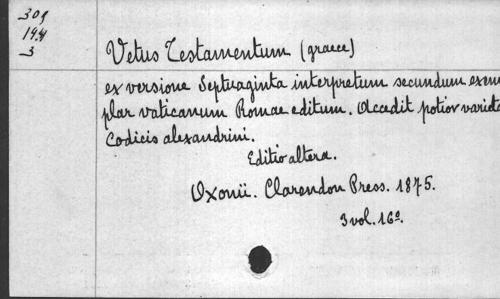 309
14.4
3
Vetus Testamentum (graece)
ex versione Septuaginta interpretum secundum exem
plar vaticanum Romae editum. Accedit potior varieta
Codicis alexandrini.
Editio altera.
Oxonii. Clarendon Press. 1875.
3 vol. 16º.